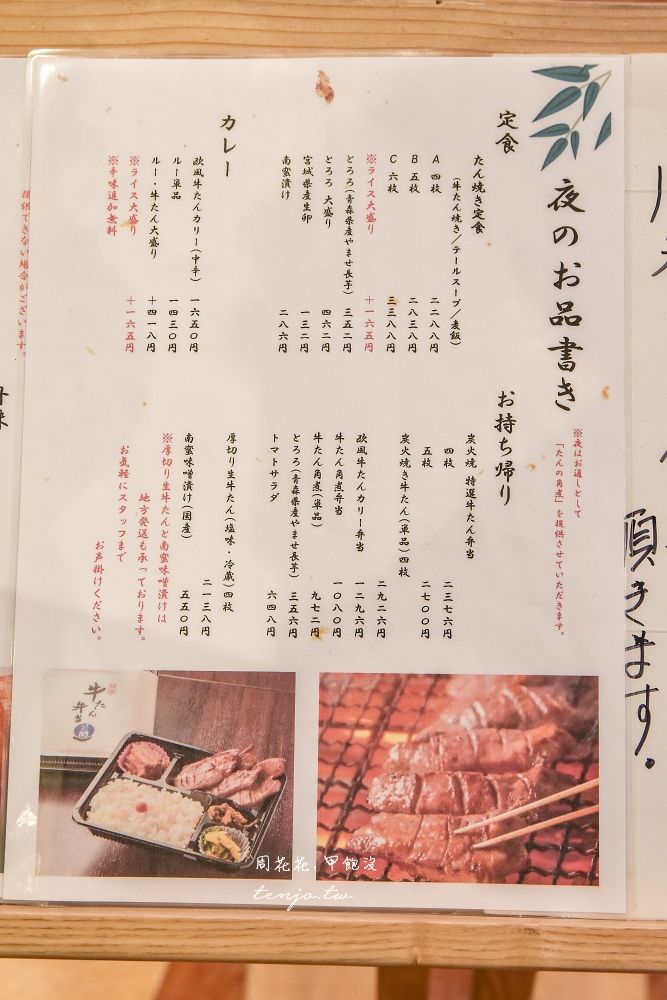 夜のお品書き
※夜はお通しとして
「たんの角煮」を提供させていただきます。
定食
たん焼き定食
(牛たん焼き/テールスープ/麦飯)
A 四枚 二二八八円
B 五枚 二八三八円
C 六枚 三三八八円
※ライス大盛り +一六五円
とろろ(青森県産やませ長芋) 三五二円
とろろ 大盛り 四六二円
宮城県産生卵 一三二円
南蛮漬け 二八六円
カレー
欧風牛たんカリー(中辛) 一六五〇円
ルー単品 一四三〇円
ルー・牛たん大盛り +四一八円
※ライス大盛り +一六五円
※辛味追加無料
お持ち帰り
炭火焼 特選牛たん弁当
四枚 二三七六円
五枚 二七〇〇円
炭火焼き牛たん(単品)四枚 二九二六円
欧風牛たんカリー弁当 一二九六円
牛たん角煮弁当 一〇八〇円
牛たん角煮(単品) 九七二円
とろろ(青森県産やませ長芋) 三五六円
トマトサラダ 六四八円
厚切り生牛たん(塩味・冷蔵)四枚 二一三八円
南蛮味噌漬け(国産) 五五〇円
※厚切り生牛たんと南蛮味噌漬けは
地方発送も承っております。
お気軽にスタッフまで
お声掛けください。
提供できない場合がございます。
頂きます。
牛たん
弁当
周花花,甲飽沒
tenjo.tw